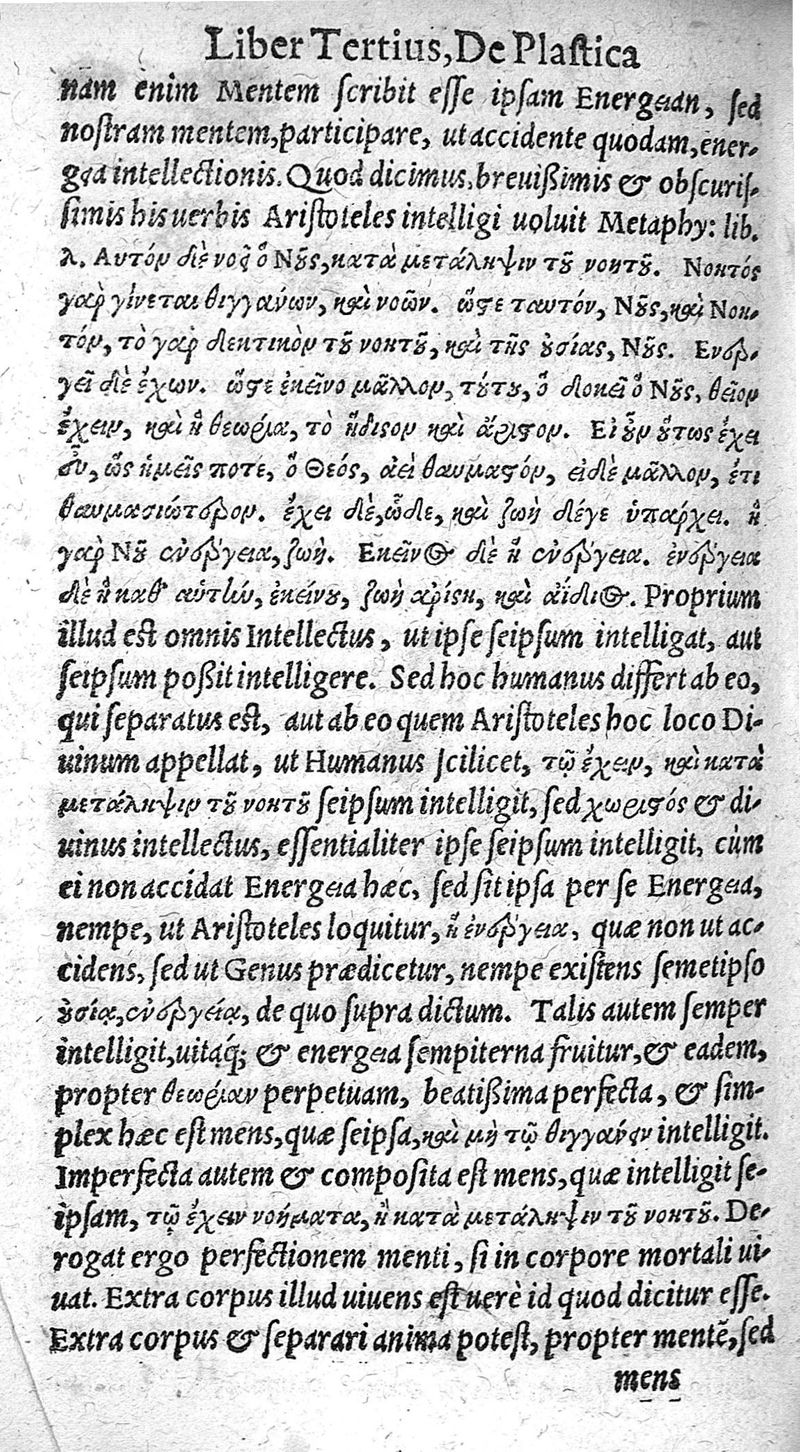 Liber Tertius, De Plastica
nam enim Mentem scribit esse ipsam Energeian, sed
nostram mentem, participare, ut accidente quodam, ener-
geia intellectionis. Quod dicimus, brevißimis & obscuris-
simis his uerbis Aristoteles intelligi uoluit Metaphy: lib.
λ. Αυτόν δὲ νοεῖ ὁ Νοῦς, κατὰ μετάληψιν τοῦ νοητοῦ. Νοητός
γαρ γίνεται θιγγανων, καὶ νοῶν. ὥστε ταυτόν, Νοῦς, καὶ Νοη-
τόν, τὸ γαρ δεκτικὸν τοῦ νοητοῦ, καὶ τῆς ουσίας, Νοῦς. Ενερ-
γεῖ δὲ ἔχων. ὥστε ἐκεῖνο μᾶλλον, τούτου, ὅ δοκεῖ ὁ Νοῦς, θεῖον
ἔχειν, καὶ ἡ θεωρία, τὸ ἥδιστον καὶ ἄριστον. Ει οὖν οὕτως ἔχει
εὖ, ὡς ἡμεῖς ποτε, ὁ Θεός, ἀεὶ θαυμαστόν, ει δὲ μᾶλλον, ἔτι
θαυμασιώτερον. ἔχει δὲ, ὧδε, καὶ ζωὴ δέγε ὑπαρχει. ἡ
γαρ Νοῦ ενέργεια, ζωή. Εκεῖνος δὲ ἡ ενέργεια. ἐνέργεια
δὲ ἡ καθ' αὑτὴν, ἐκείνου, ζωὴ αρίστη, καὶ αἴδιος. Proprium
illud est omnis Intellectus, ut ipse seipsum intelligat, aut
seipsum poßit intelligere. Sed hoc humanus differt ab eo,
qui separatus est, aut ab eo quem Aristoteles hoc loco Di-
uinum appellat, ut Humanus scilicet, τῷ ἔχειν, καὶ κατὰ
μετάληψιν τοῦ νοητοῦ seipsum intelligit, sed χωριστός & di-
uinus intellectus, essentialiter ipse seipsum intelligit, cùm
ei non accidat Energeia hæc, sed sit ipsa per se Energeia,
nempe, ut Aristoteles loquitur, ἡ ἐνέργεια, quæ non ut ac-
cidens, sed ut Genus prædicetur, nempe existens semetipso
ουσίᾳ, ενέργείᾳ, de quo supra dictum. Talis autem semper
intelligit, uitaq́; & energeia sempiterna fruitur, & eadem,
propter θεωρίαν perpetuam, beatißima perfecta, & sim-
plex hæc est mens, quæ seipsa, καὶ μὴ τῷ θιγγανειν intelligit.
Imperfecta autem & composita est mens, quæ intelligit se-
ipsam, τῷ ἔχειν νοήματα, ἢ κατὰ μετάληψιν τοῦ νοητοῦ. De-
rogat ergo perfectionem menti, si in corpore mortali ui-
uat. Extra corpus illud uiuens est uerè id quod dicitur esse.
Extra corpus & separari anima potest, propter mentē, sed
mens